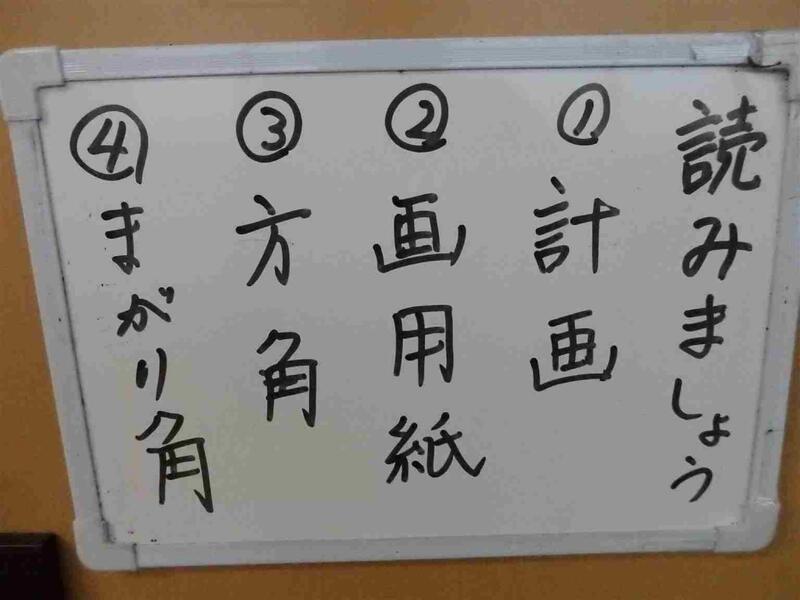 読みましょう
① 計画
② 画用紙
③ 方角
④ まがり角